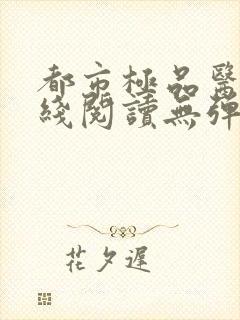 都市極品醫
綫閱讀無彈
花夕遲